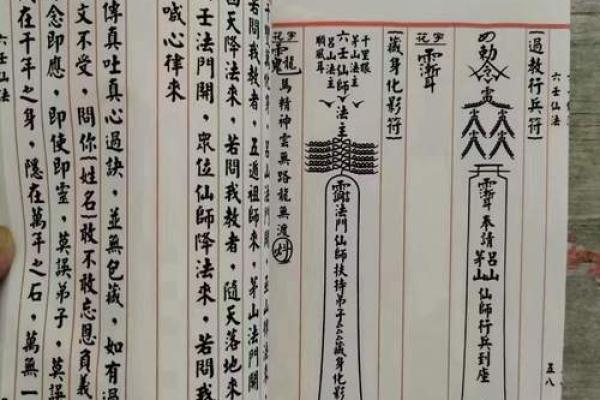 六壬仙法
五八
【過教行兵符】
の勅
奉請
呂山
茅山
仙師行兵到座
花字
【藏身化影符】
千里眼
茅山法主
六壬仙師
法主
呂山法主
順風耳
法門仙師扶持弟子厶厶藏身化影
花字
龍馬精神雲無路龍無渡
我教者，五遁祖師來，茅山法門開
天降法來，若問我教者，隨天落地來
壬法門開，眾位仙師降法來，若問我
喊心律來
傳真吐真心過訣，並無包藏，如有過
文不受，問你(姓名)敢不敢忘恩負義
念即應，即使即靈，莫誤弟子，莫誤
在千年之身，隱在萬年之石，萬無一
六壬仙法